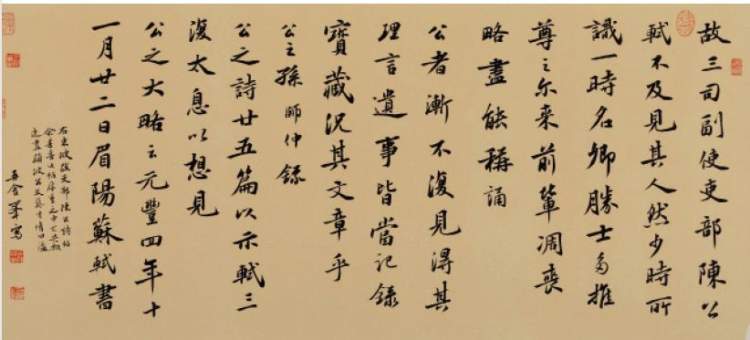 故三司副使吏部陳公
軾不及見其人然少時所
識一時名卿勝士多推
尊之尔来前輩凋喪
略盡能稱誦
公者漸不復見得其
理言遺事皆當記錄
寶藏況其文章乎
公之孫師仲錄
公之詩廿五篇以示軾三
復太息以想見
公之大略云元豐四年十
一月廿二日眉陽蘇軾書
右東坡跋吏部陳公詩帖